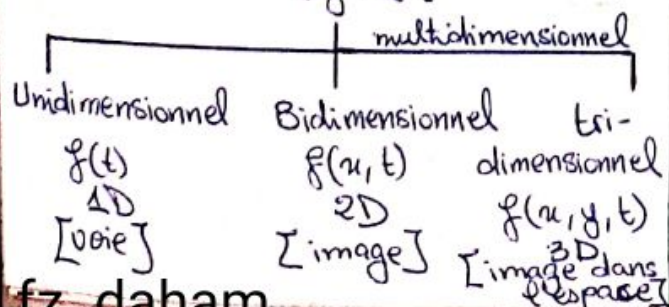 multidimensionnel
Unidimensionnel
f(t)
1D
[voie]
Bidimensionnel
f(x,t)
2D
[image]
tri-
dimensionnel
f(x,y,t)
3D
[image dans
l'espace]
fz daham